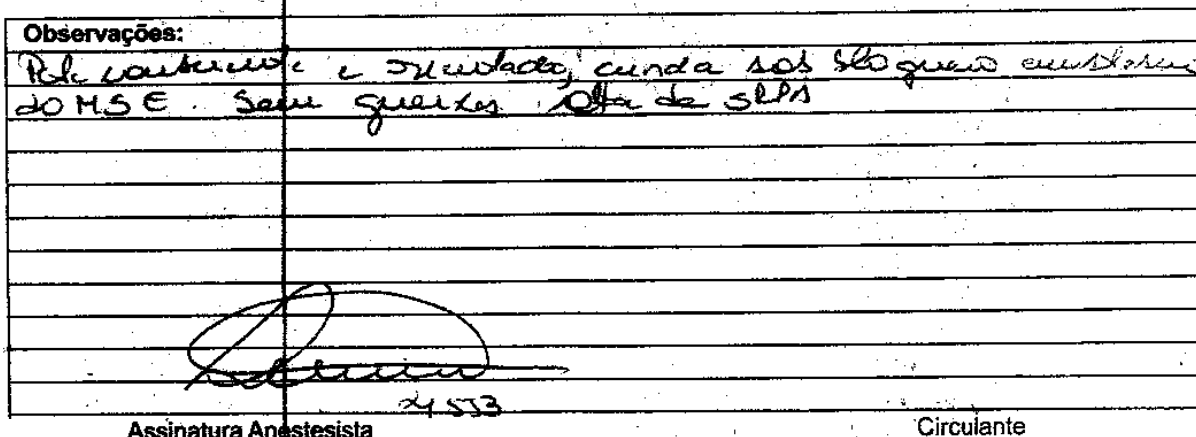 Observações:
Pcte consciente e orientado, ainda sob bloqueio anestésico
do MSE. Sem queixas. Alta da SRPA
Assinatura Anestesista
Circulante